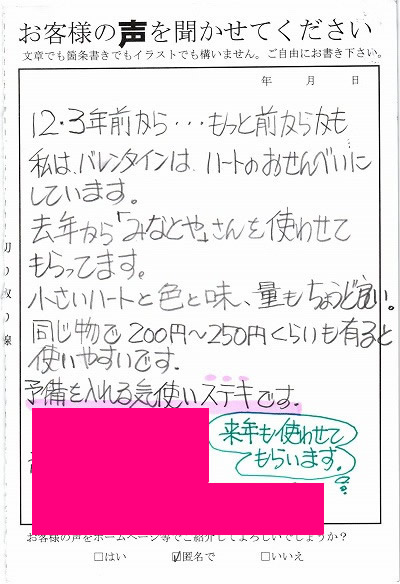 お客様の声を聞かせてください
文章でも箇条書きでもイラストでも構いません。ご自由にお書き下さい。
年 月 日
12・3年前から・・・もっと前からかも
私は、バレンタインは、ハートのおせんべいに
しています。
去年から「みなとや」さんを使わせて
もらってます。
小さいハートと色と味、量もちょうど良い。
同じ物で200円〜250円くらいも有ると
使いやすいです。
予備を入れる気使いステキです。
来年も使わせて
もらいます。
切り取り線
お客様の声をホームページ等でご紹介してよろしいでしょうか？
□はい ☑匿名で □いいえ